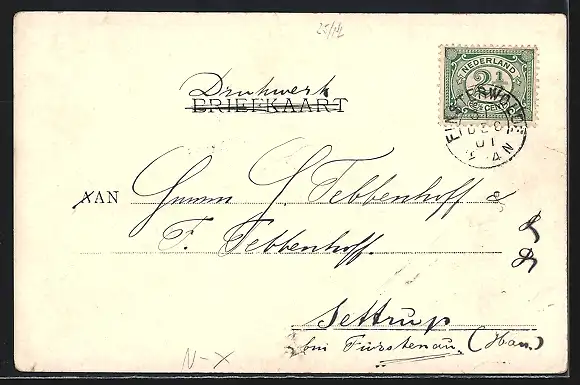 25/12
NEDERLAND
2½
CENT
FINSTERWOLDE
DEC
01
4 N
Drukwerk
BRIEFKAART
AAN G. Tebbenhoff &
F. Tebbenhoff.
Settrup
bei Fürstenau. (Han.)
N-X